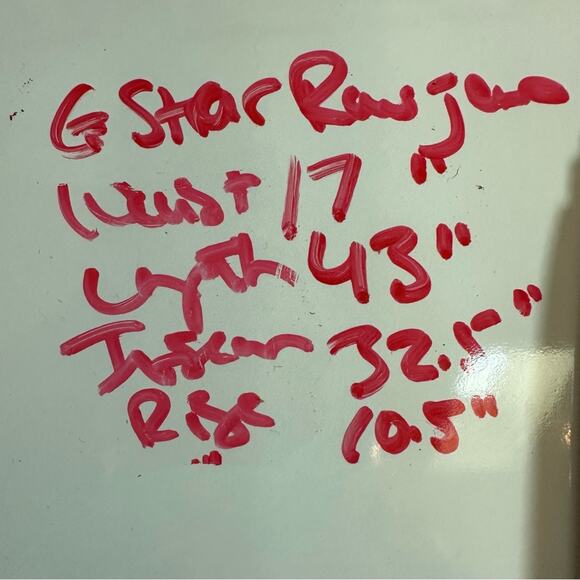 G Star Raw jean
Waist 17"
Length 43"
Inseam 32.5"
Rise 10.5"